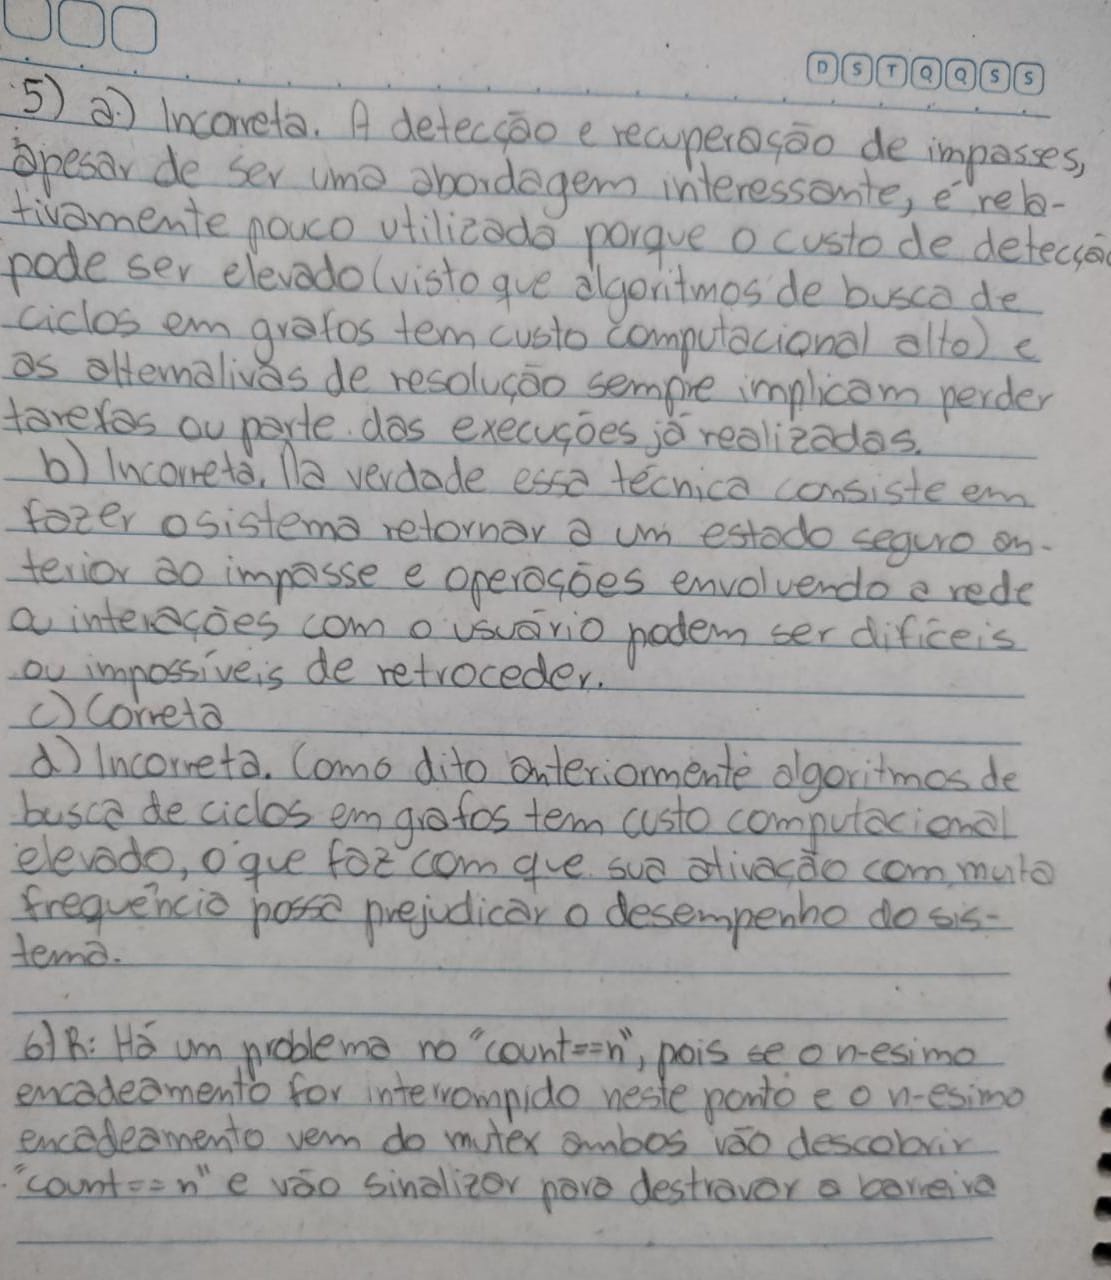 D S T Q Q S S
5) a.) Incorreta. A detecção e recuperação de impasses,
apesar de ser uma abordagem interessante, é rela-
tivamente pouco utilizada porque o custo de detecção
pode ser elevado (visto que algoritmos de busca de
ciclos em grafos tem custo computacional alto) e
as alternativas de resolução sempre implicam perder
tarefas ou parte das execuções já realizadas.
b) Incorreta. Na verdade essa técnica consiste em
fazer o sistema retornar a um estado seguro an-
terior ao impasse e operações envolvendo a rede
a interações com o usuário podem ser difíceis
ou impossíveis de retroceder.
c) Correta
d) Incorreta. Como dito anteriormente algoritmos de
busca de ciclos em grafos tem custo computacional
elevado, o que faz com que sua ativação com muita
frequência possa prejudicar o desempenho do sis-
tema.
6) R: Há um problema no "count==n", pois se o n-esimo
encadeamento for interrompido neste ponto e o n-esimo
encadeamento vem do mutex ambos vão descobrir
"count==n" e vão sinalizar para destravar a barreira